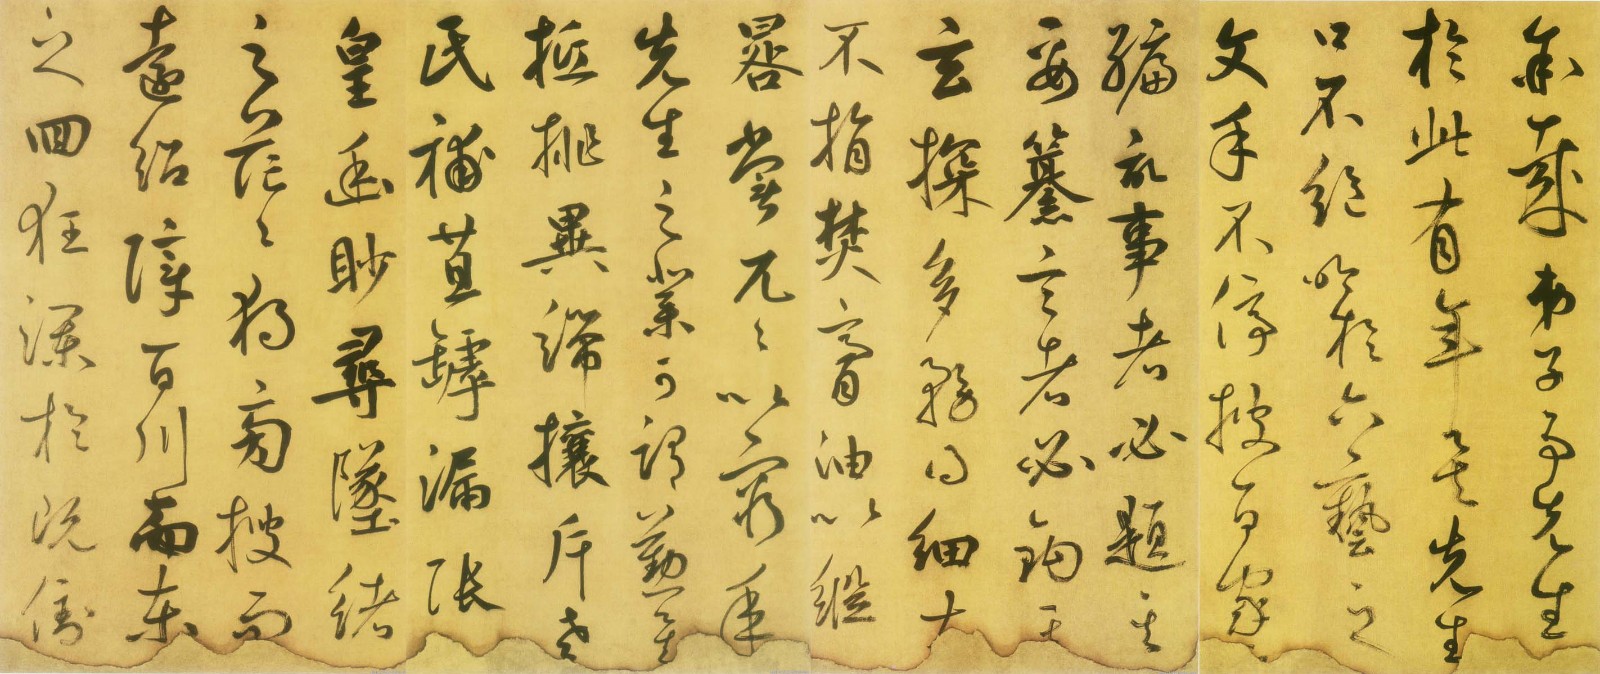 余哉弟子事先生
於此有年矣先生
口不絕吟於六藝之
文手不停披百家之
編記事者必題其
要纂言者必鉤其
玄探多務得細大
不捐焚膏油以繼
晷常兀兀以窮年
先生之業可謂勤矣
抵排異端攘斥老
氏補苴罅漏張
皇幽眇尋墜緒
之茫茫獨旁搜而
遠紹障百川而東
之回狂瀾於既倒